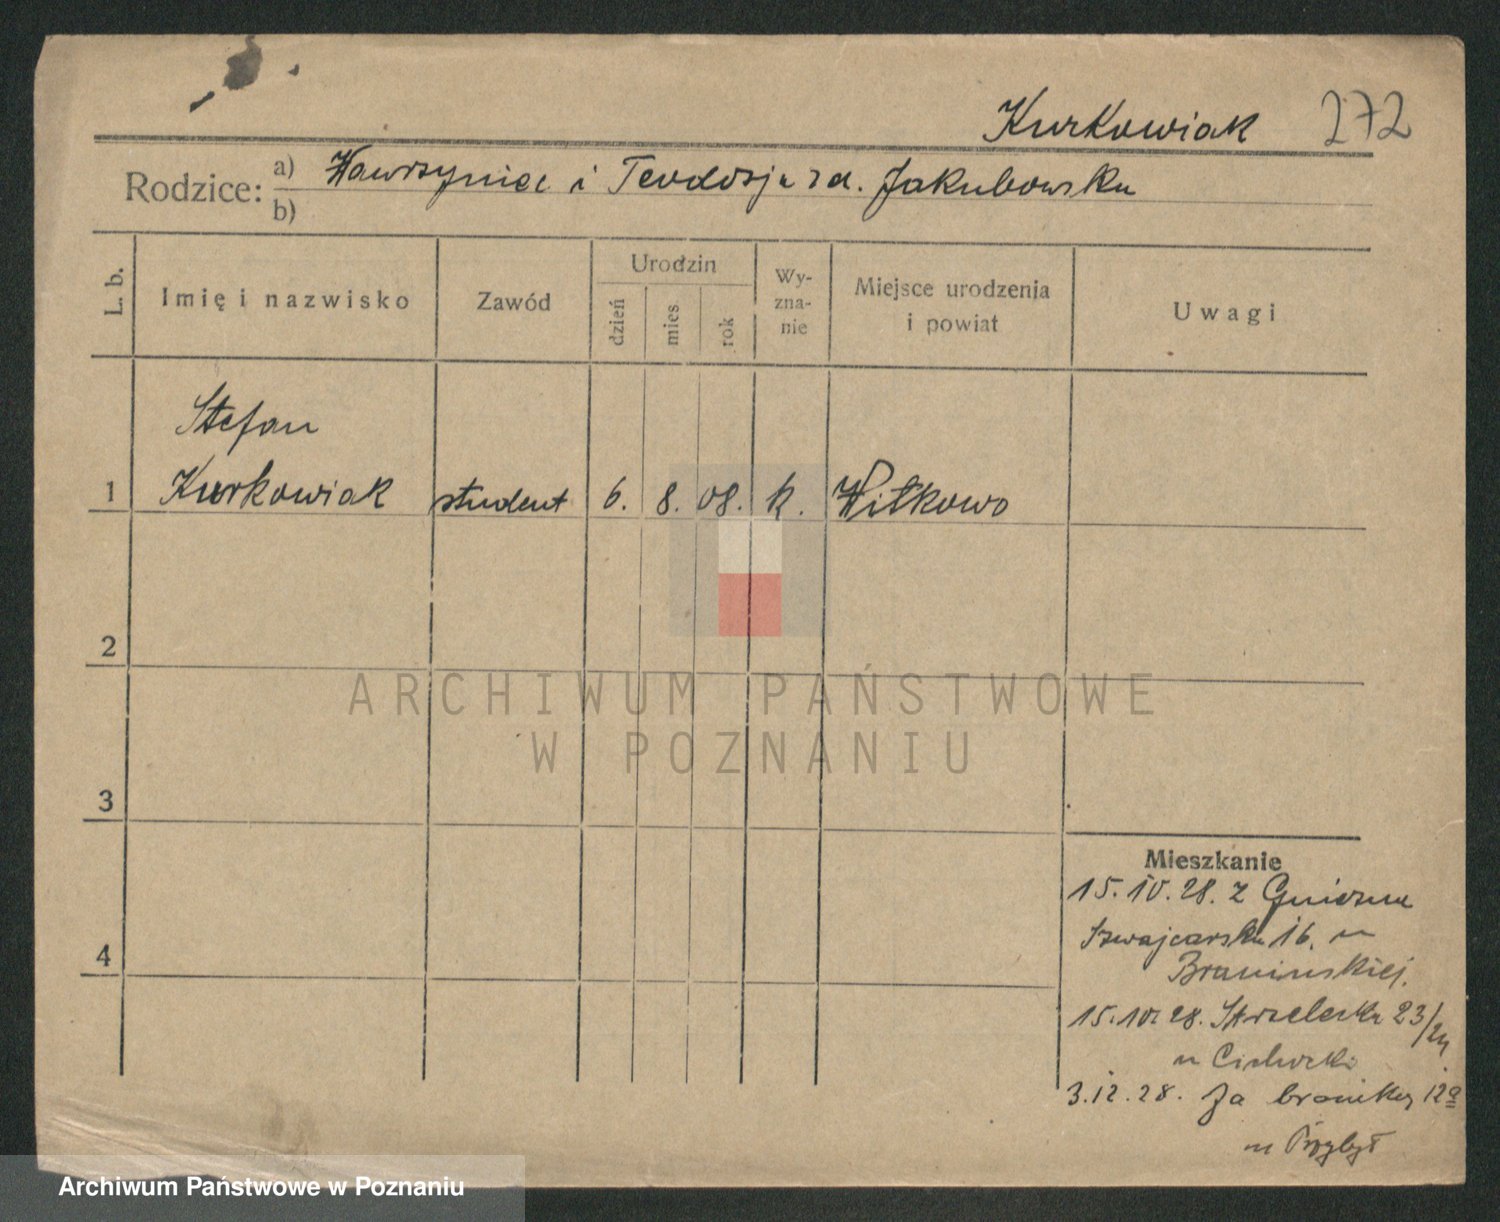 Kurkowiak 272
Rodzice: a) Wawrzyniec i Teodozja zd. Jakubowska
b)
L. b. Imię i nazwisko Zawód Urodzin dzień mies rok Wy-zna-nie Miejsce urodzenia i powiat Uwagi
Stefan
1 Kurkowiak student 6. 8. 08. k. Witkowo
2
ARCHIWUM PAŃSTWOWE
W POZNANIU
3
Mieszkanie
15.10.28. z Gniezna
Szwajcarska 16. u
4
Braminskiej.
15.10.28. Strzelecka 23/24
u
3.12.28. Za bramką 12a
u Przybył
Archiwum Państwowe w Poznaniu